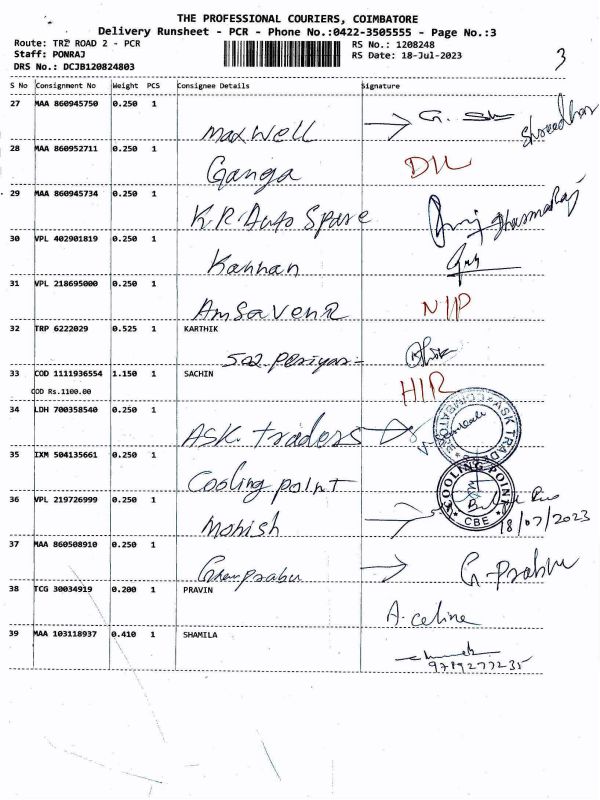 THE PROFESSIONAL COURIERS, COIMBATORE
Delivery Runsheet - PCR - Phone No.:0422-3505555 - Page No.:3
Route: TRZ ROAD 2 - PCR RS No.: 1208248
Staff: PONRAJ RS Date: 18-Jul-2023
DRS No.: DCJB120824803 3
S No Consignment No Weight PCS Consignee Details Signature
27 MAA 860945750 0.250 1
Maxwell G. Shreedhar
28 MAA 860952711 0.250 1
Ganga DIL
29 MAA 860945734 0.250 1
K.R. Auto Spare Dharmaraj
30 VPL 402901819 0.250 1
Kannan
31 VPL 218695000 0.250 1
N/P
32 TRP 6222029 0.525 1 KARTHIK
33 COD 1111936554 1.150 1 SACHIN
COD Rs.1100.00 HIR
34 LDH 700358540 0.250 1
ASK traders ASK TRAD
35 IXM 504135661 0.250 1
Cooling point COOLING POINT
CBE
36 VPL 219726999 0.250 1
Mohish 18/07/2023
37 MAA 860508910 0.250 1
G-Prabhu
38 TCG 30034919 0.200 1 PRAVIN
A. celine
39 MAA 103118937 0.410 1 SHAMILA
9789277235